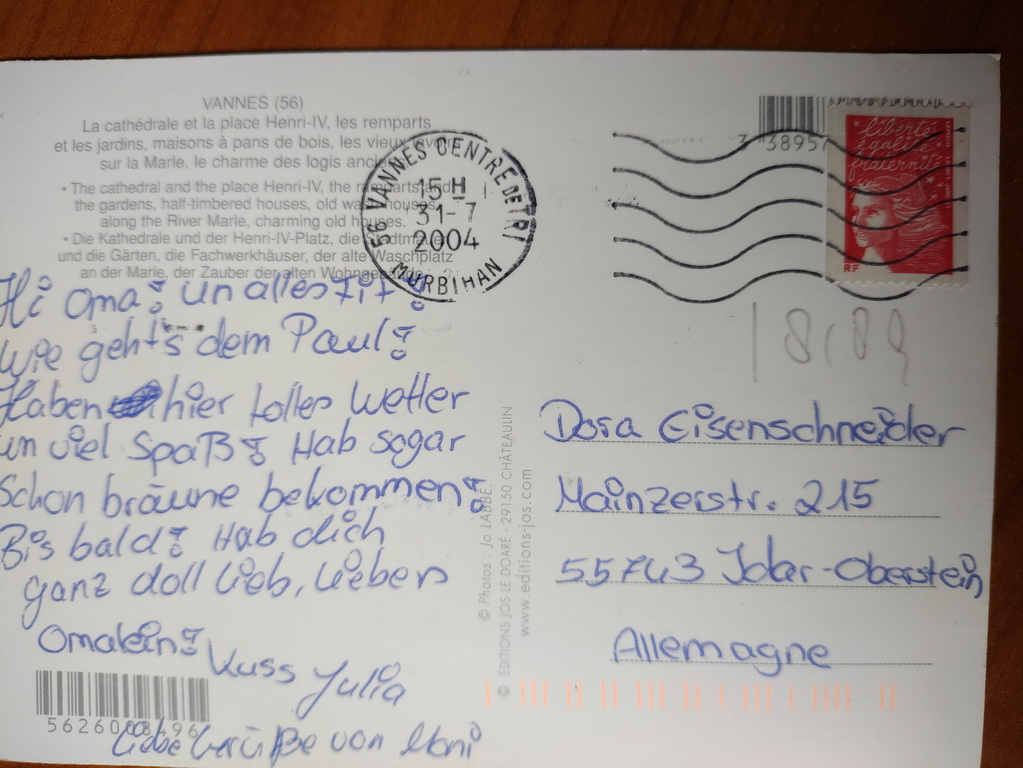 VANNES (56)
La cathédrale et la place Henri-IV, les remparts
et les jardins, maisons à pans de bois, les vieux
sur la Marle, le charme des logis anciens.
• The cathedral and the place Henri-IV, the ramparts and
the gardens, half-timbered houses, old wash houses
along the River Marle, charming old houses.
• Die Kathedrale und der Henri-IV-Platz, die Stadtmauer
und die Gärten, die Fachwerkhäuser, der alte Waschplatz
an der Marle, der Zauber der alten
56 VANNES CENTRE DE TRI
15 H
31-7
2004
MORBIHAN
3 38957
liberté
égalité
fraternité
RF
18/89
Hi Oma! un alles fit?
Wie geht's dem Paul?
Haben hier tolles Wetter
un viel Spaß! Hab sogar
schon bräune bekommen!
Bis bald! Hab dich
ganz doll lieb, liebes
Omalein!
Kuss Julia
liebe Grüße von Moni
5626008496
© Photos : Jo LABBÉ.
© EDITIONS JOS LE DOARÉ - 29150 CHÂTEAULIN
www.editions-jos.com
Dora Eisenschneider
Mainzerstr. 215
55743 Idar-Oberstein
Allemagne